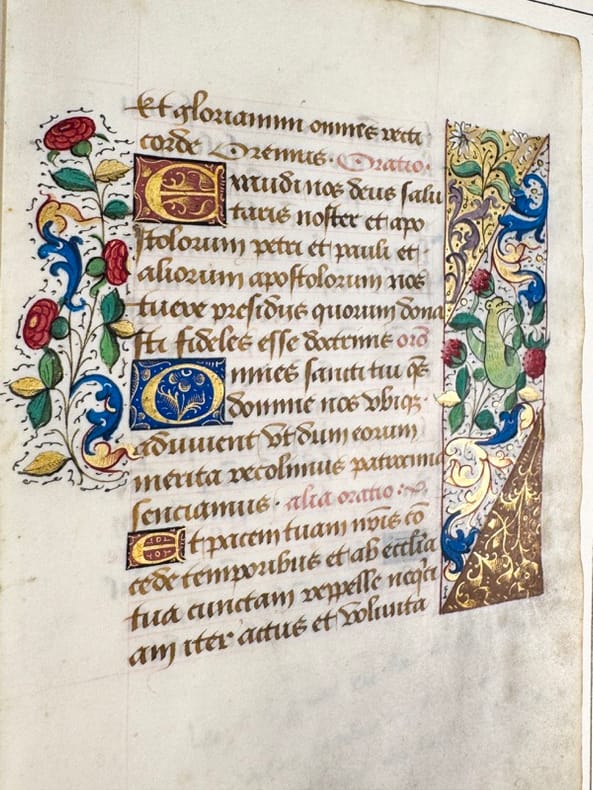 Et gloriamini omnes recti
corde Oremus. Oratio.
Exaudi nos deus salu
taris noster et apo
stolorum petri et pauli et
aliorum apostolorum nos
tuere presidiis quorum dona
sti fideles esse doctrinis orō
Omnes sancti tui q̄s
domine nos vbiq.
adiuuent vt dum eorum
merita recolimus patrocinia
senciamus. alia oratio:
Et pacem tuam nr̄is cō
cede temporibus et ab ecclīa
tua cunctam reppelle neq̄ci
am iter actus et volunta